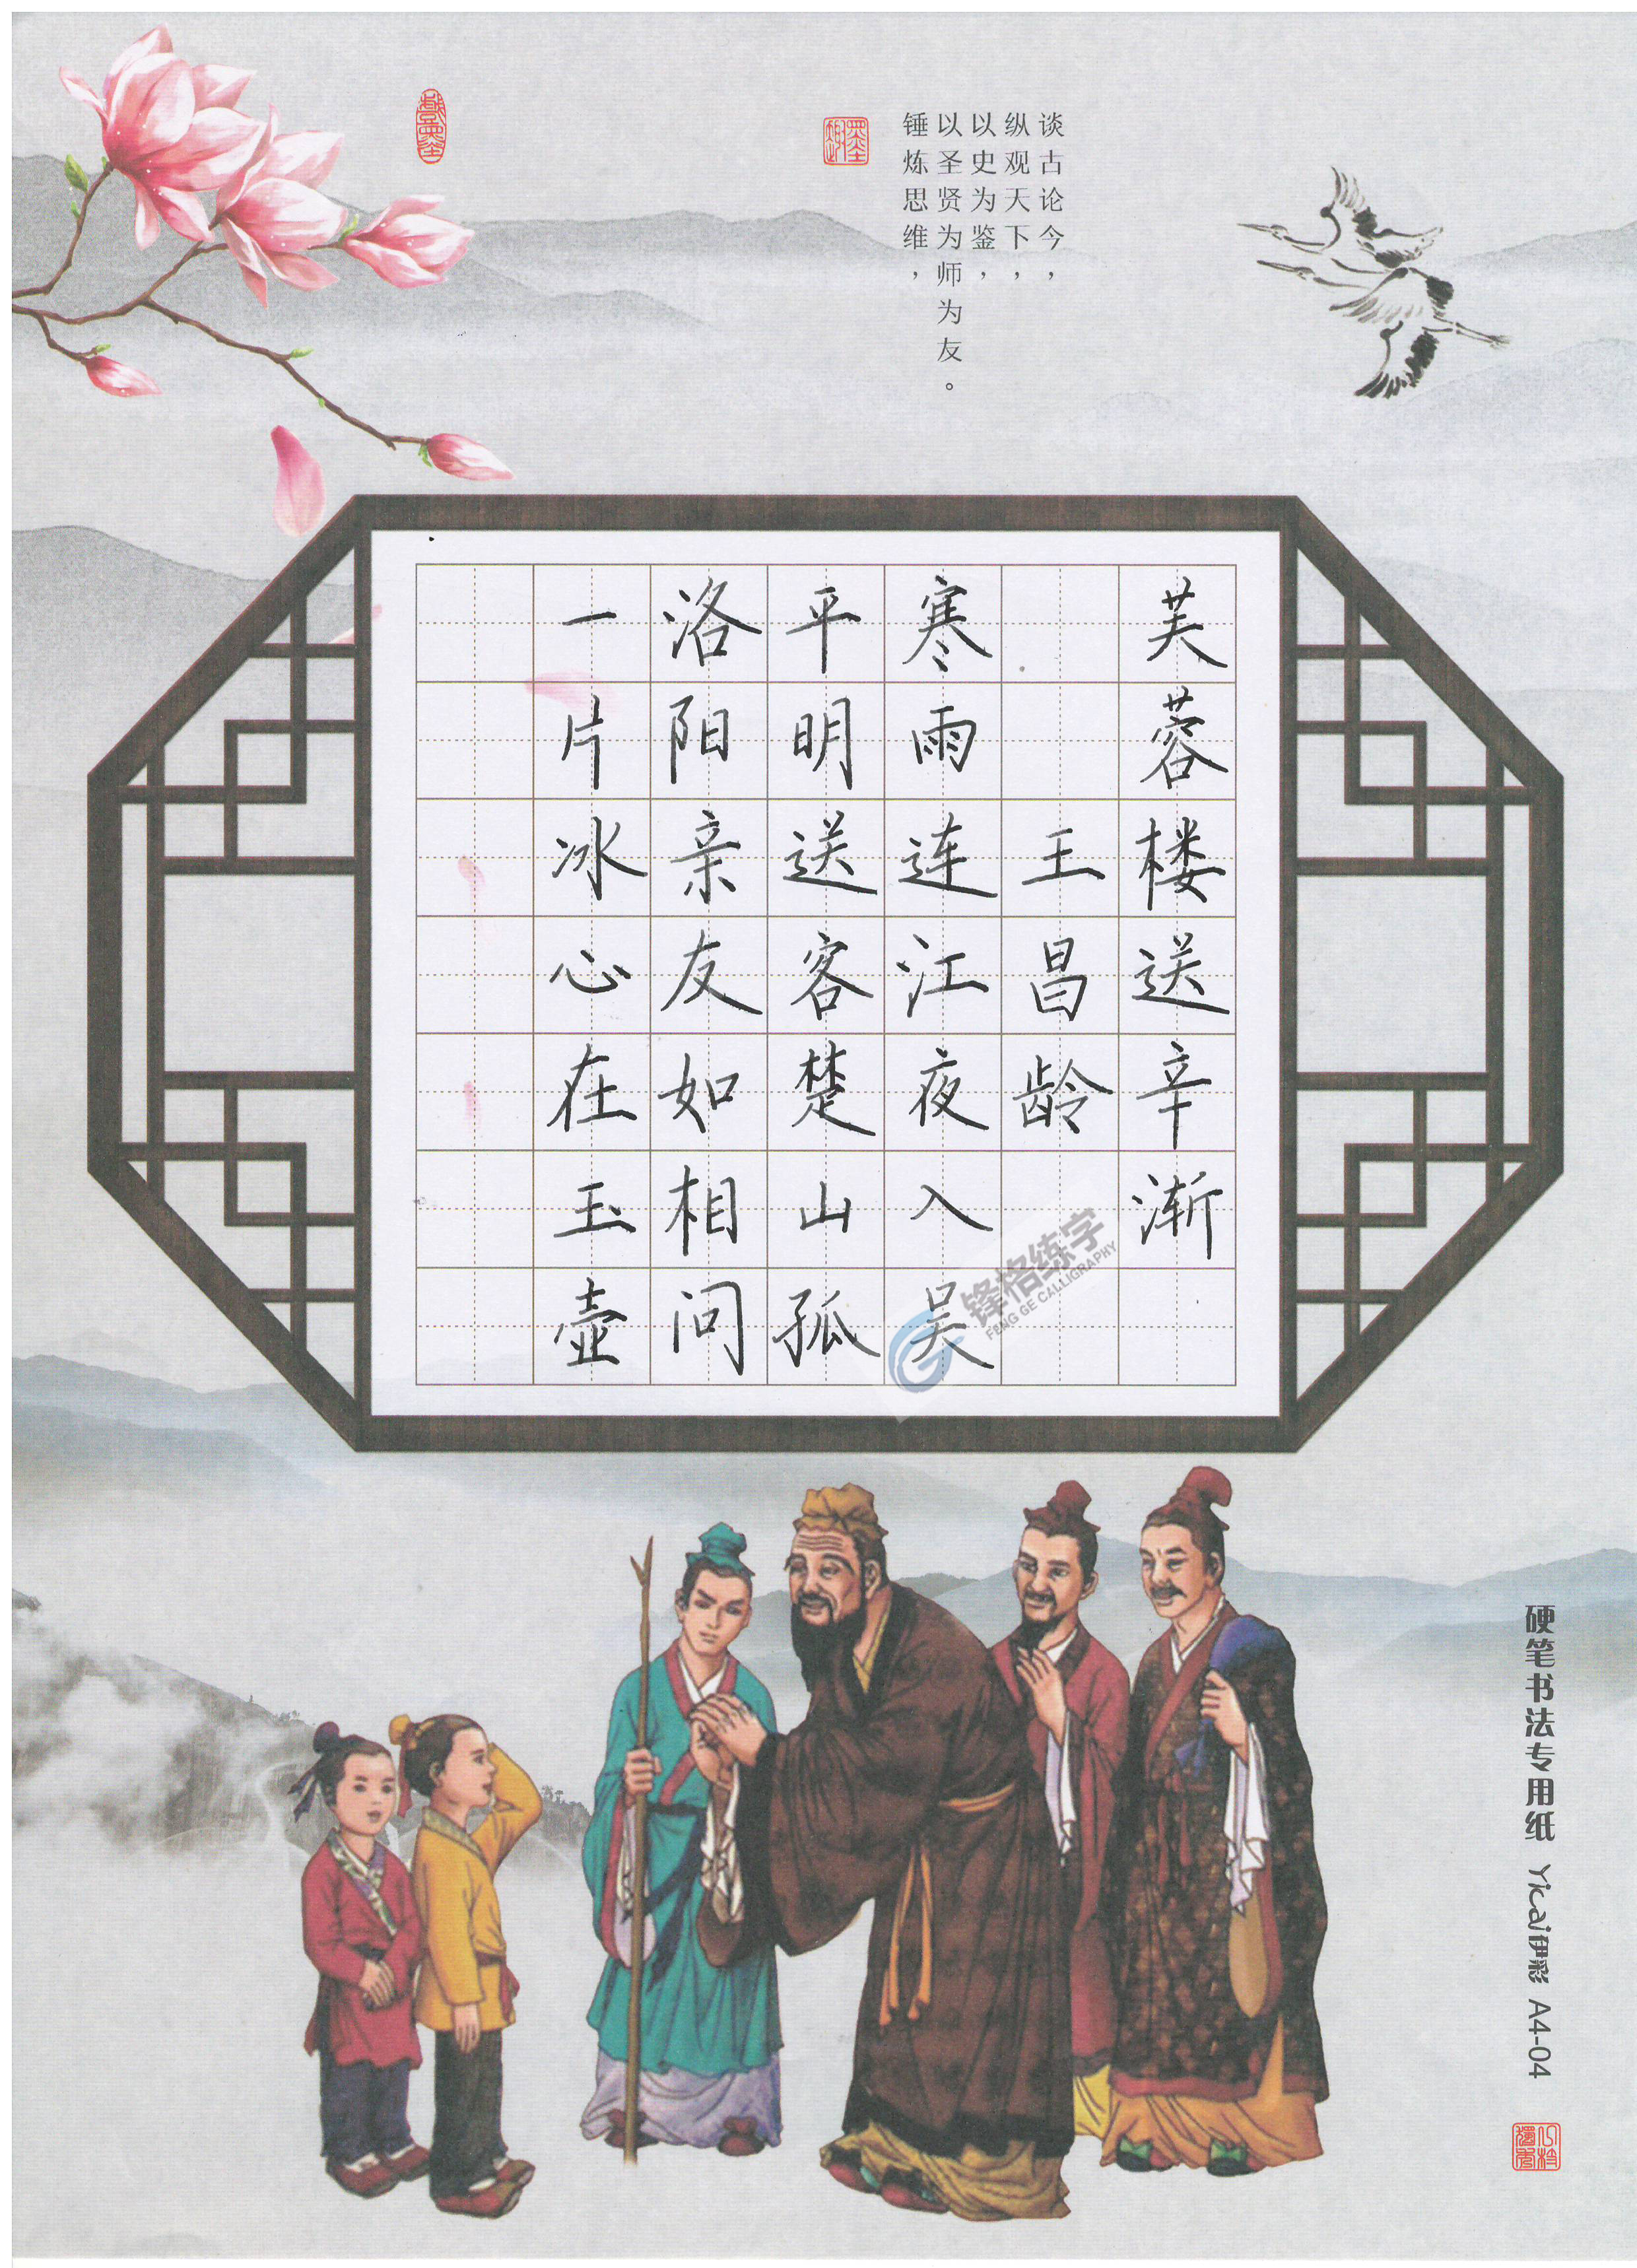 谈古论今，
纵观天下，
以史为鉴，
以圣贤为师为友。
锤炼思维，
墨趣
芙蓉楼送辛渐
王昌龄
寒雨连江夜入吴
平明送客楚山孤
洛阳亲友如相问
一片冰心在玉壶
锋格练字
FENG GE CALLIGRAPHY
硬笔书法专用纸 Yicai伊彩 A4-04